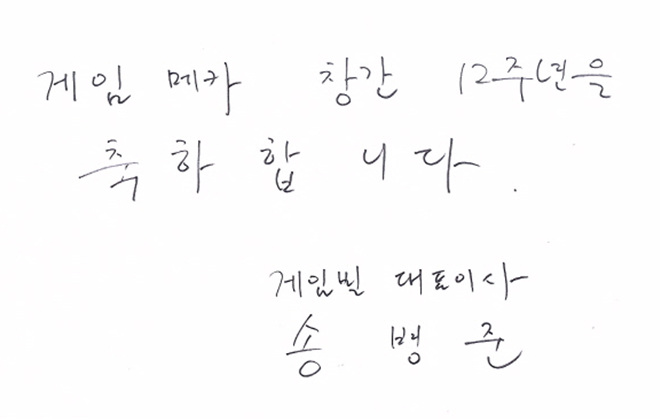 게임 메카 창간 12주년을
축하합니다.
게임빌 대표이사
송병준